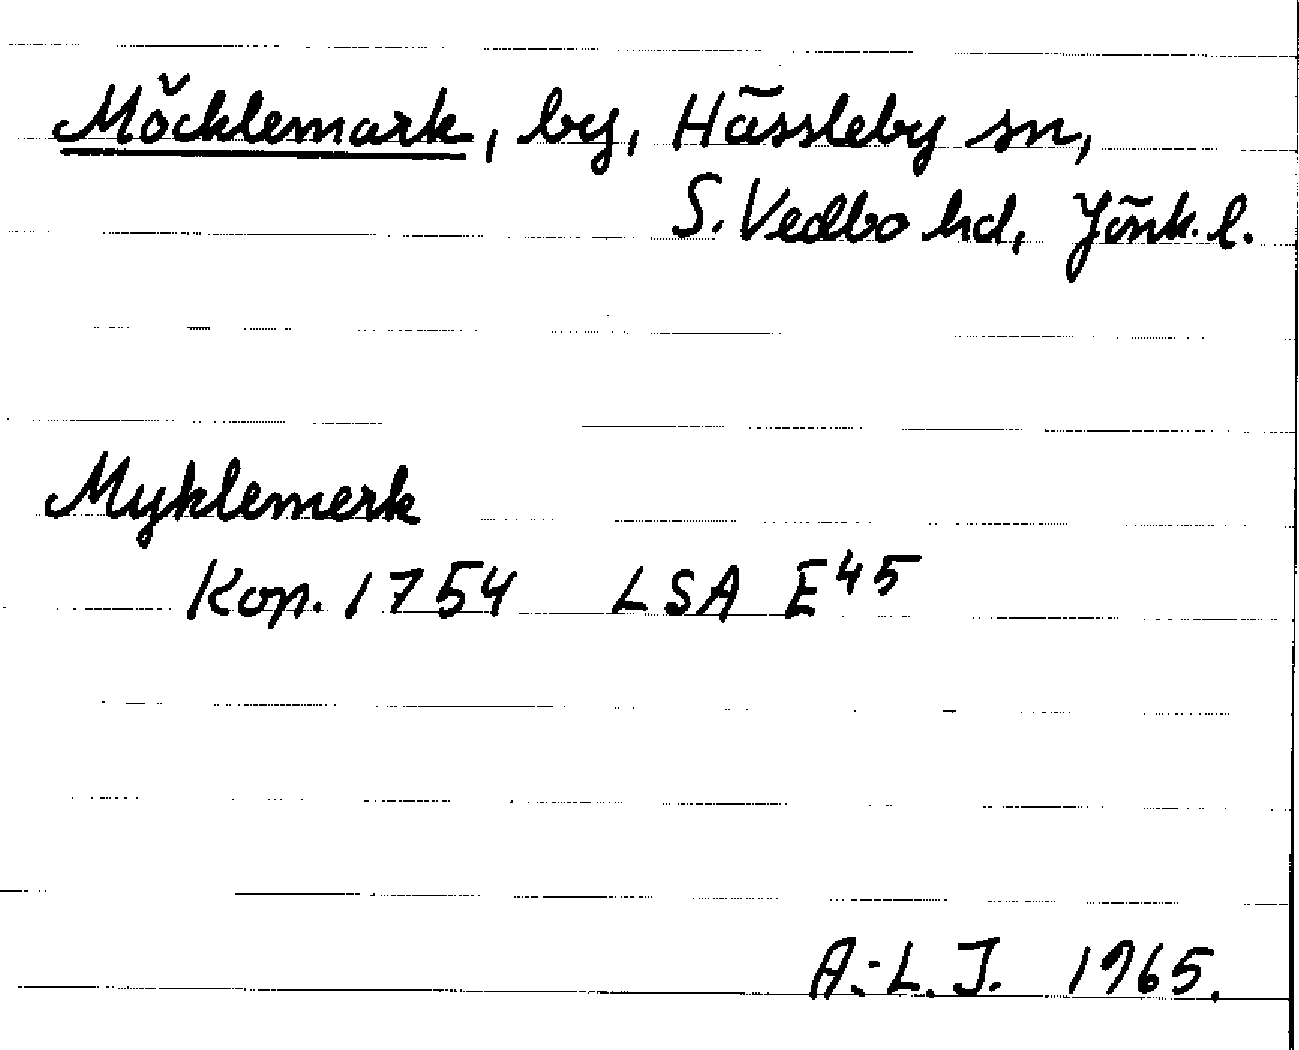 Möcklemark, by, Hässleby sn,
S. Vedbo hd, Jönk. l.
Myklemerk
Kop. 1754 LSA E45
A.-L. J. 1965.